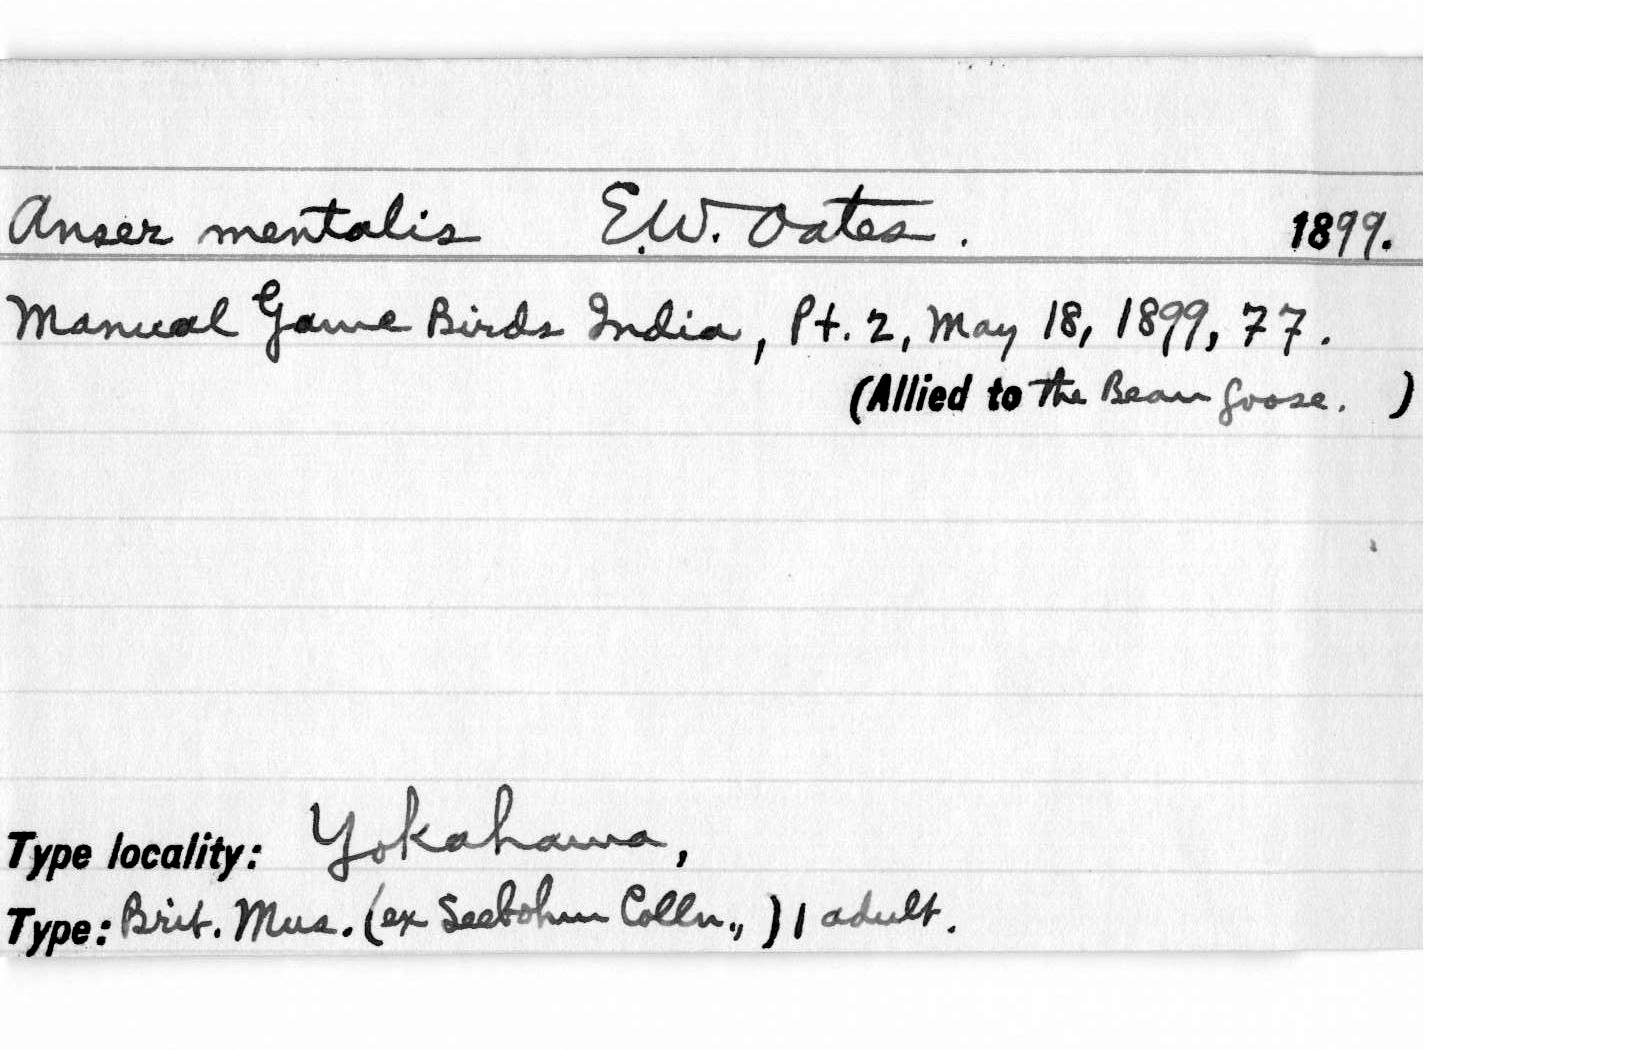 Anser mentalis E.W. Oates. 1899.
Manual Game Birds India, Pt. 2, May 18, 1899, 77.
(Allied to the Bean Goose. )
Type locality: Yokahama,
Type: Brit. Mus. (ex Seebohm Colln.,) 1 adult.